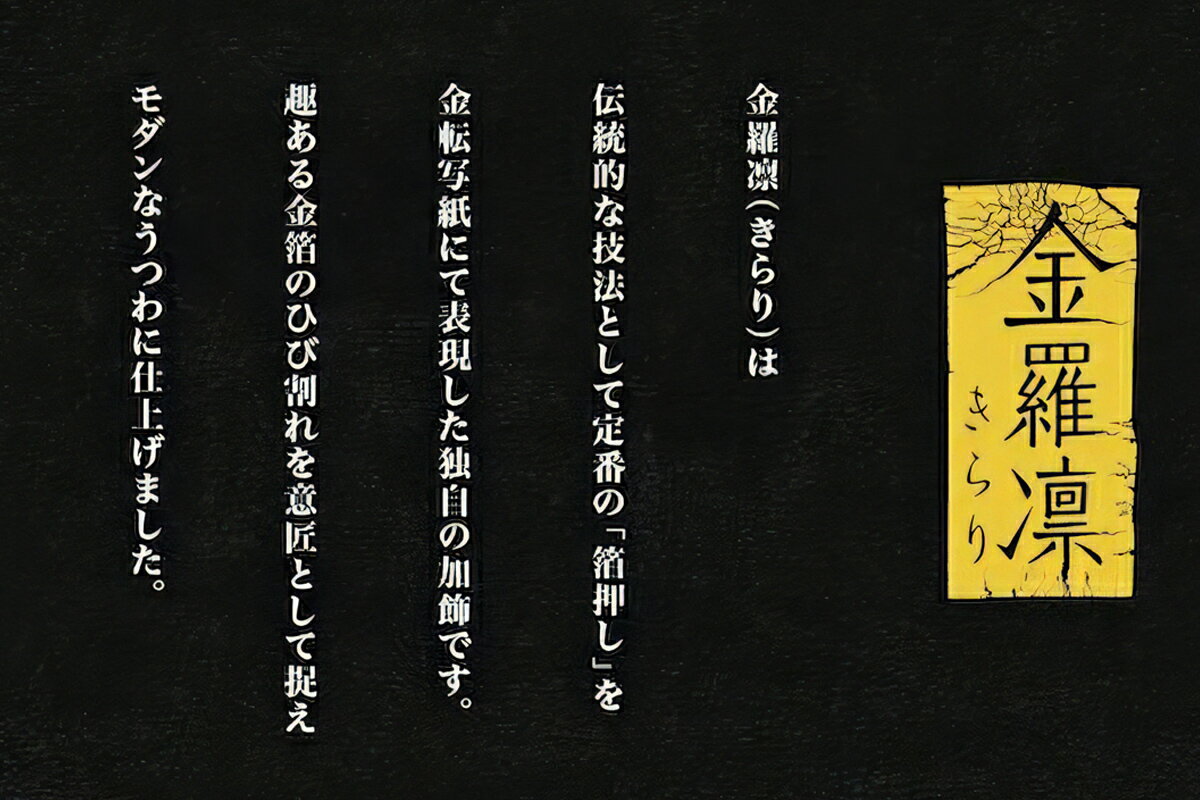 金羅凛
きらり
金羅凛(きらり)は
伝統的な技法として定番の「箔押し」を
金転写紙にて表現した独自の加飾です。
趣ある金箔のひび割れを意匠として捉え
モダンなうつわに仕上げました。